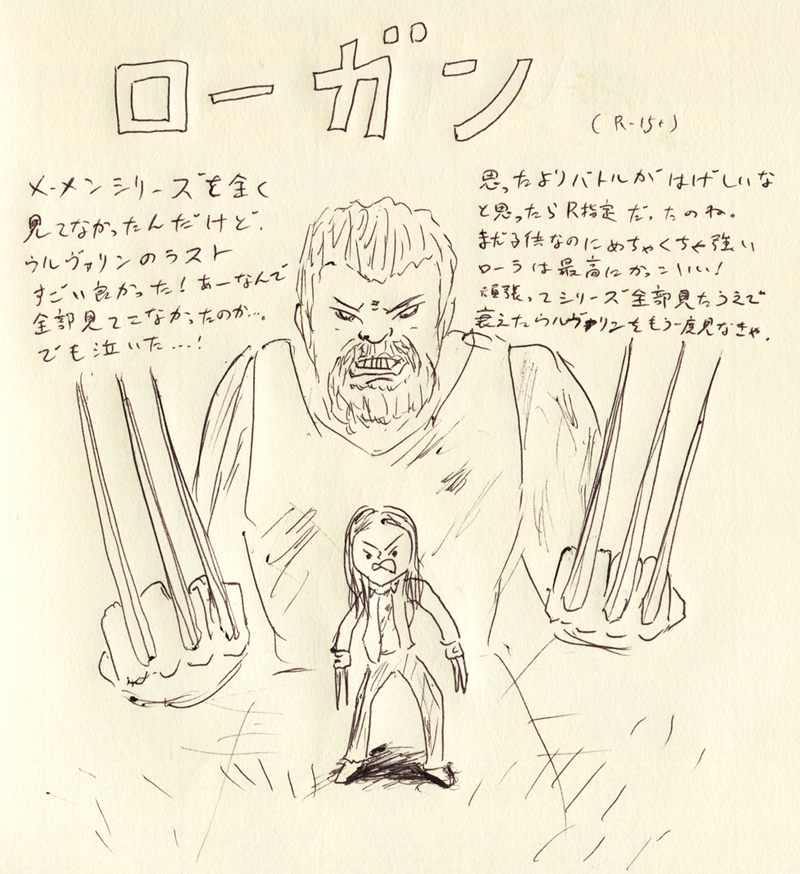 ローガン
(R-15+)
メーメンシリーズを全く
見てなかったんだけど、
ウルヴァリンのラスト
すごい良かった！あーなんで
全部見てこなかったのか…。
でも泣いた…！
思ったよりバトルがはげしいな
と思ったらR指定だったのね。
まだ子供なのにめちゃくちゃ強い
ローラは最高にかっこいい！
頑張ってシリーズ全部見たうえで
衰えたウルヴァリンをもう一度見なきゃ.